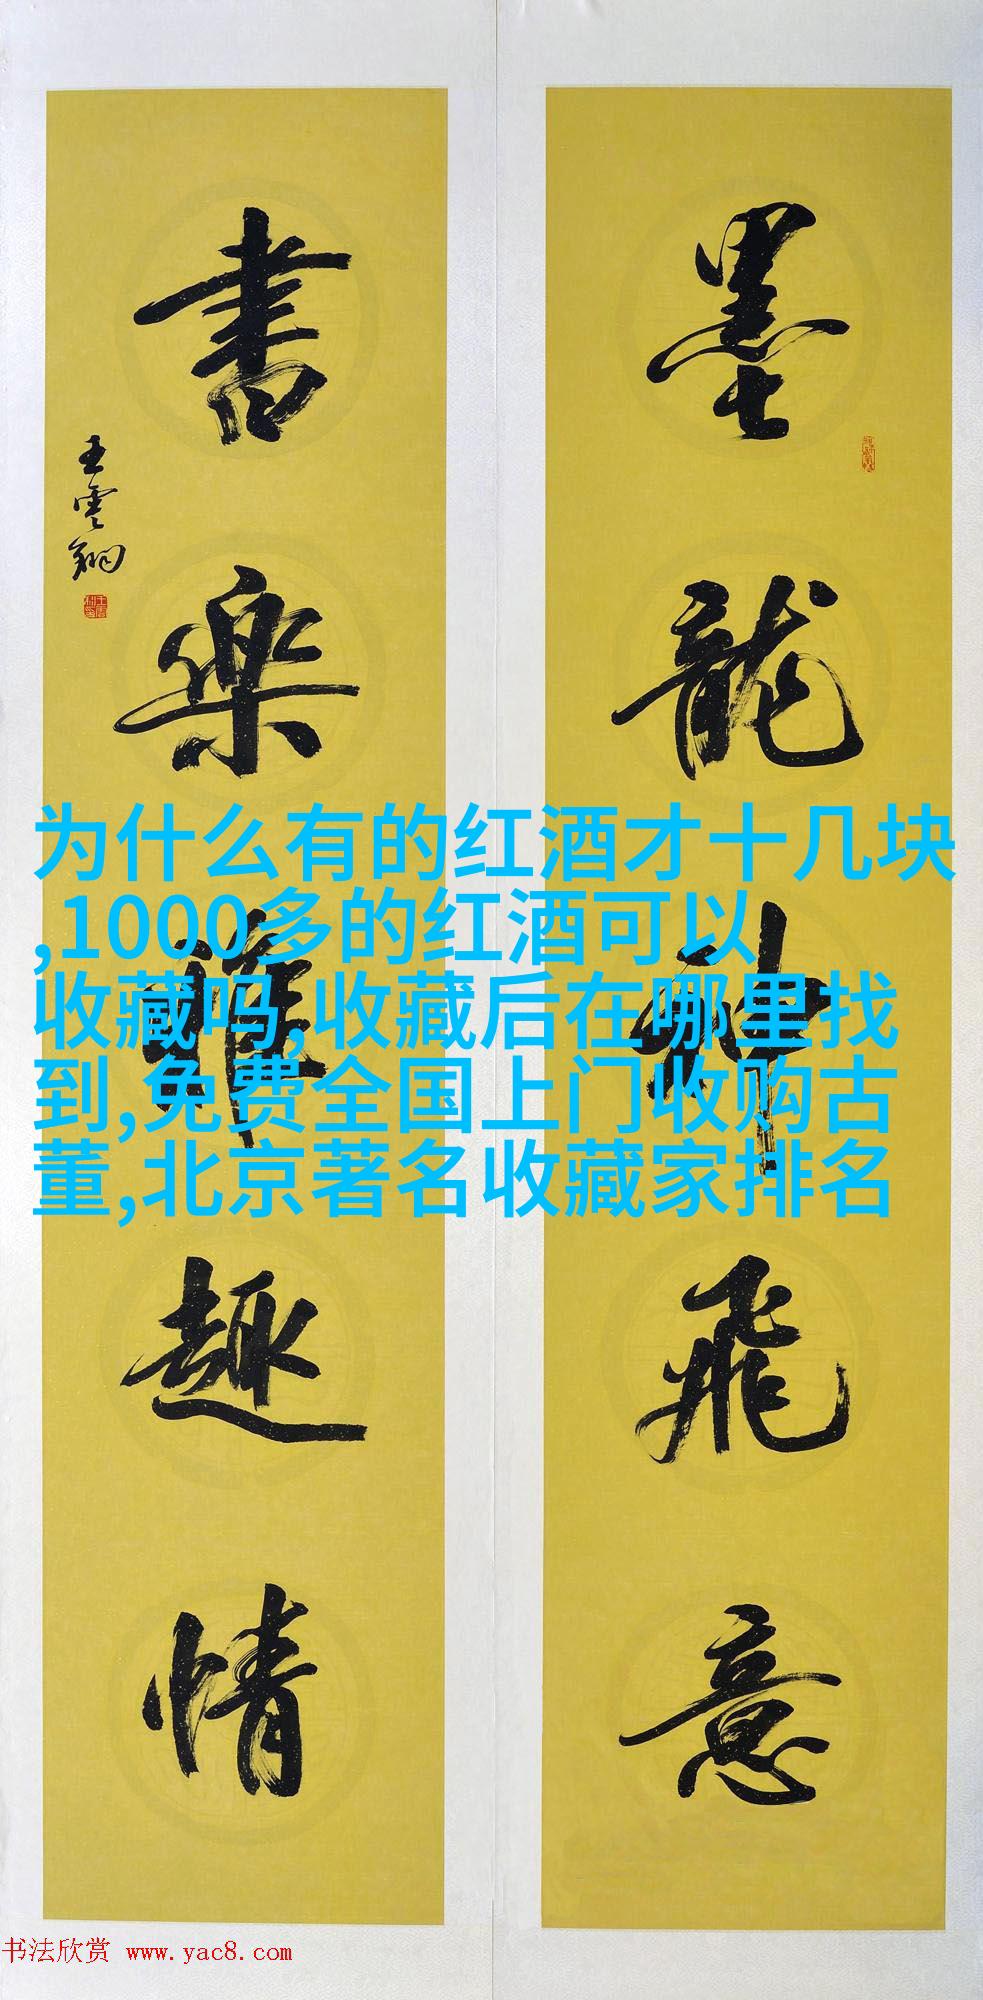 墨龍神飛意
書樂雅趣情
王雲翔
为什么有的红酒才十几块
,1000多的红酒可以
收藏吗,收藏后在哪里找
到,免费全国上门收购古
董,北京著名收藏家排名
书法欣赏 www.yac8.com